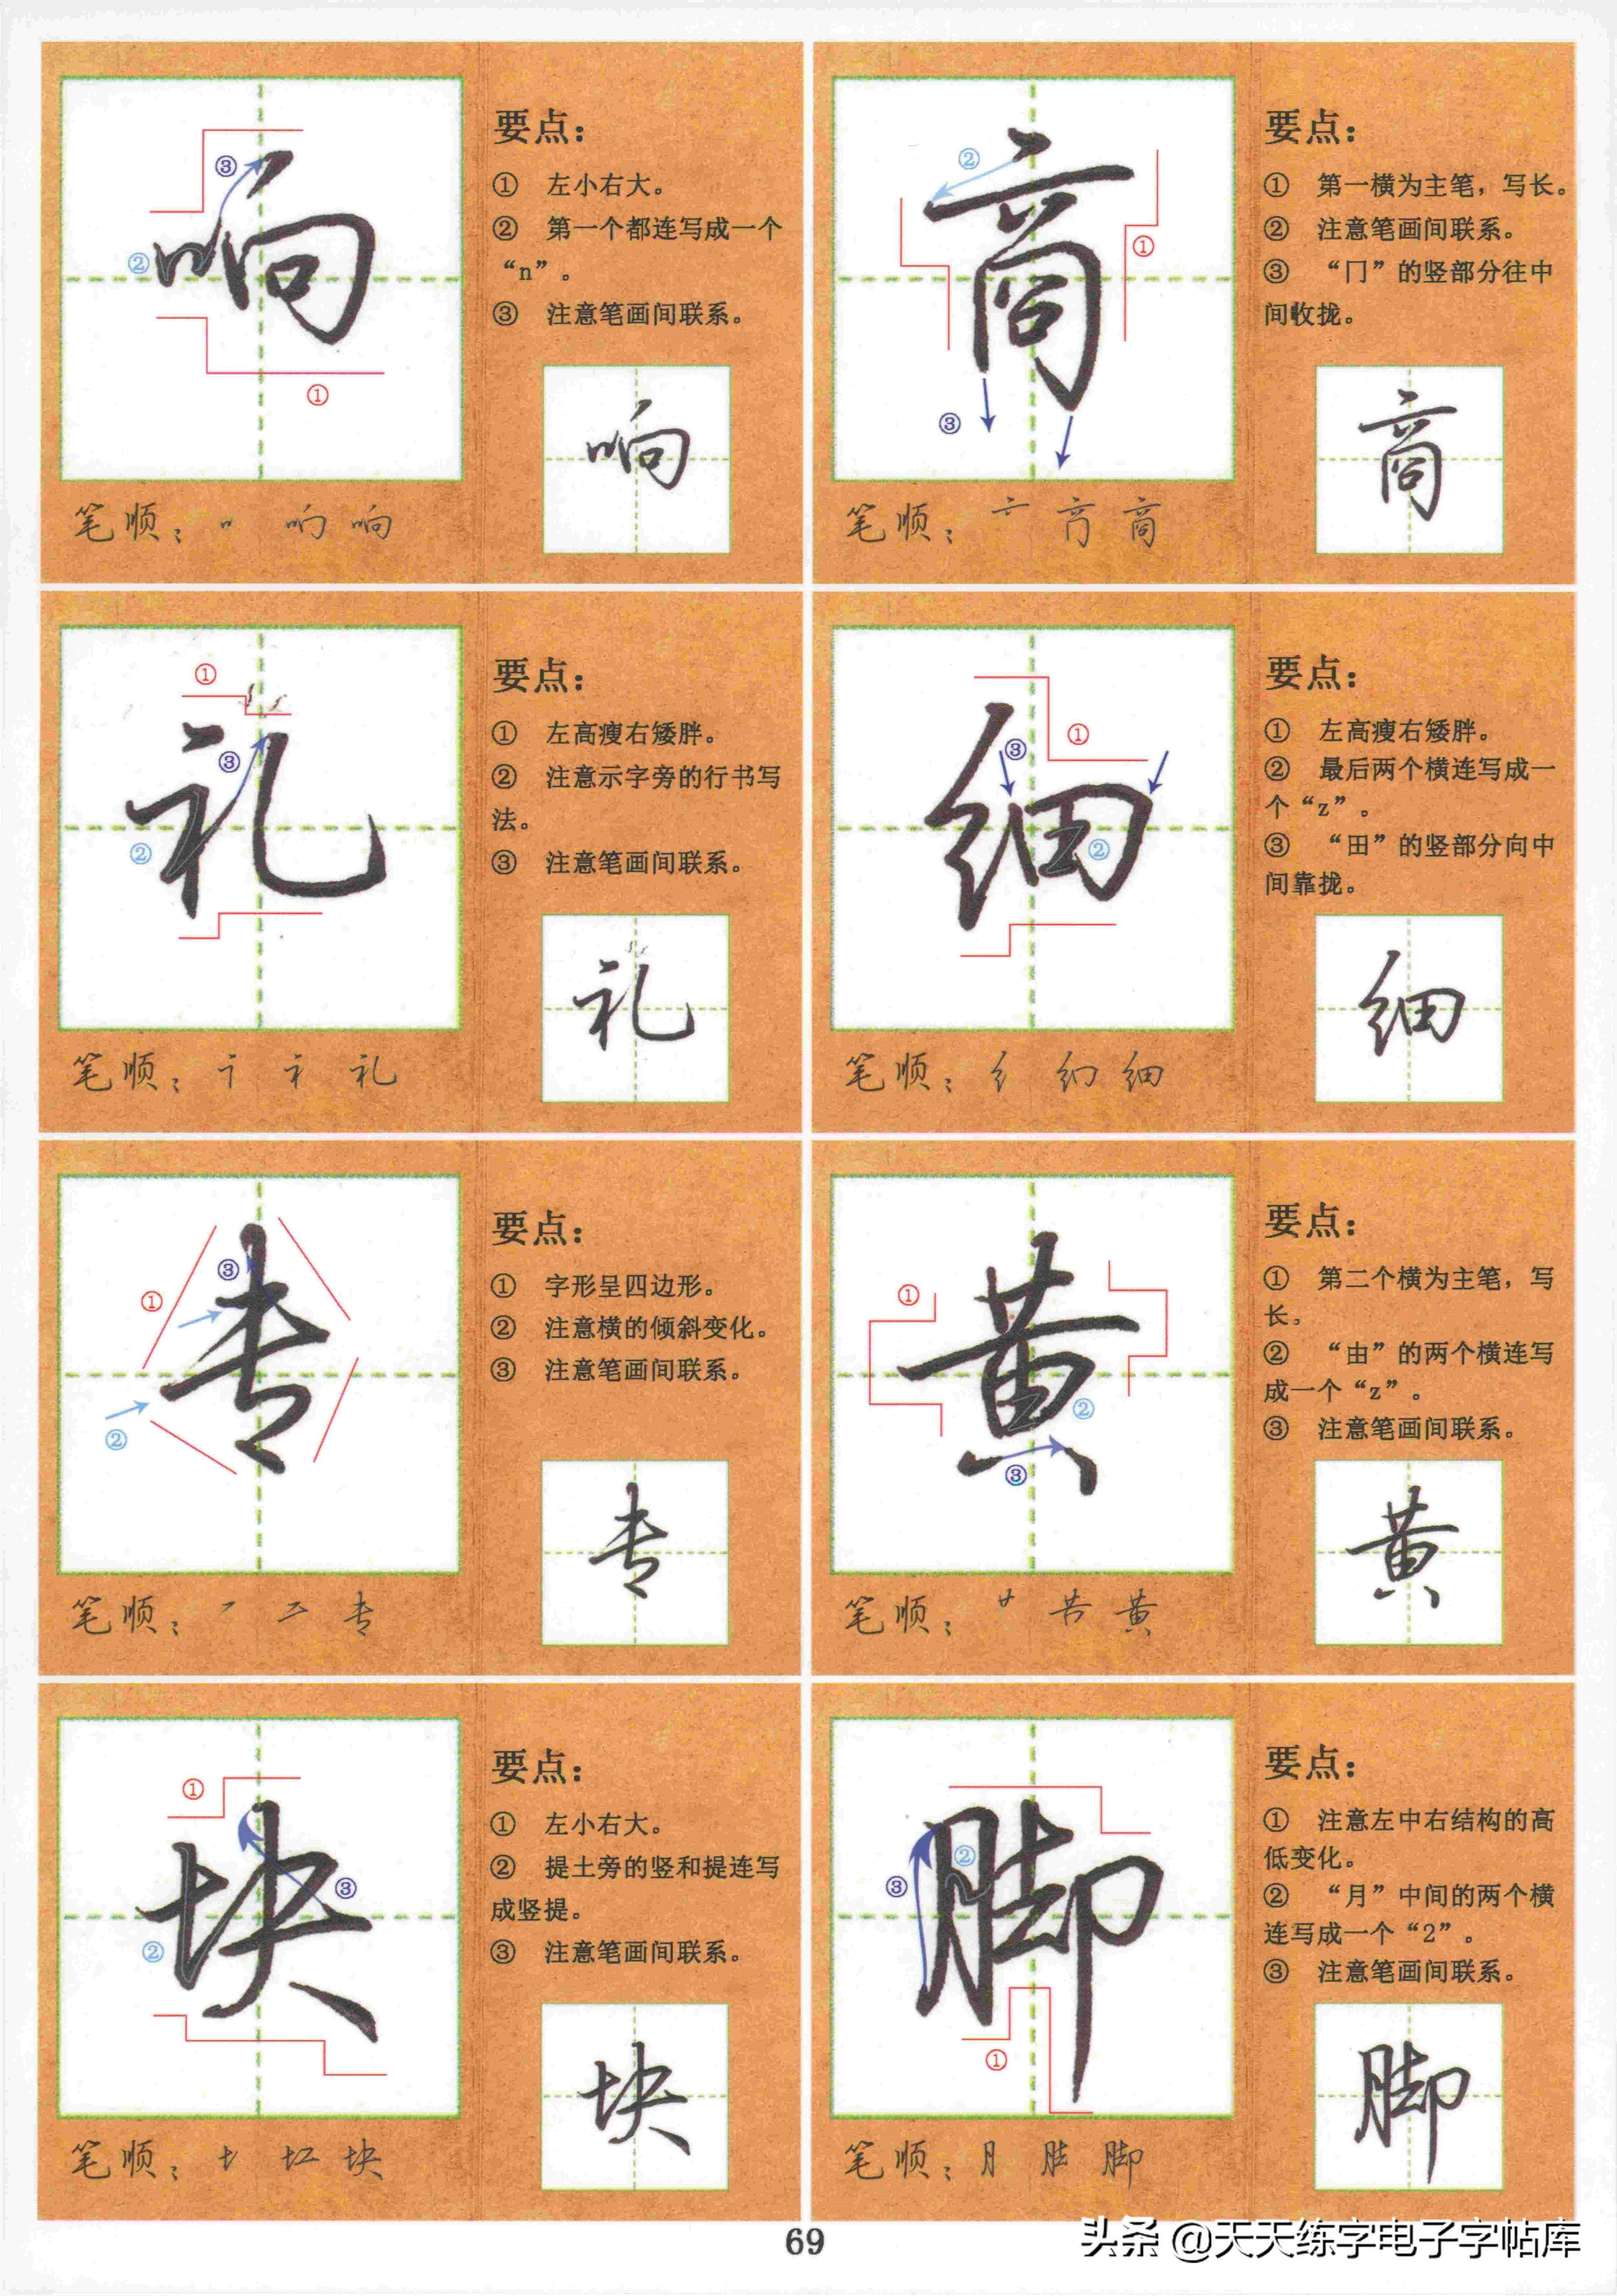 响
要点：
① 左小右大。
② 第一个都连写成一个
“n”。
③ 注意笔画间联系。
③
②
①
响
笔顺：
响
商
要点：
① 第一横为主笔，写长。
② 注意笔画间联系。
③ “冂”的竖部分往中
间收拢。
②
①
③
商
笔顺：
商
礼
要点：
① 左高瘦右矮胖。
② 注意示字旁的行书写
法。
③ 注意笔画间联系。
①
③
②
礼
笔顺：
礼
细
要点：
① 左高瘦右矮胖。
② 最后两个横连写成一
个“z”。
③ “田”的竖部分向中
间靠拢。
③
①
②
细
笔顺：
细
专
要点：
① 字形呈四边形。
② 注意横的倾斜变化。
③ 注意笔画间联系。
③
①
②
专
笔顺：
专
黄
要点：
① 第二个横为主笔，写
长。
② “由”的两个横连写
成一个“z”。
③ 注意笔画间联系。
①
②
③
黄
笔顺：
黄
块
要点：
① 左小右大。
② 提土旁的竖和提连写
成竖提。
③ 注意笔画间联系。
①
③
②
块
笔顺：
块
脚
要点：
① 注意左中右结构的高
低变化。
② “月”中间的两个横
连写成一个“2”。
③ 注意笔画间联系。
②
③
①
脚
笔顺：月 脚
69
头条 @天天练字电子字帖库